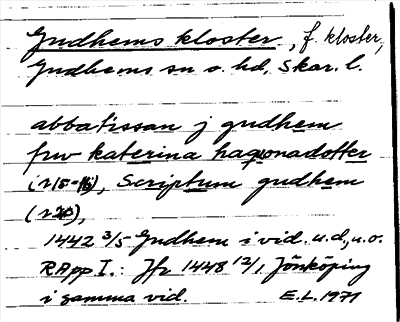 Gudhems kloster, f. kloster,
Gudhems sn o. hd, Skar. l.
abbatissan j gudhem
frw katerina haquonadotter
(r 15-16), Scriptum gudhem
(r 20),
1442 3/5 Gudhem i vid. u.d., u.o.
RApp I.: Jfr 1448 12/1 Jönköping
i samma vid. E.L. 1971